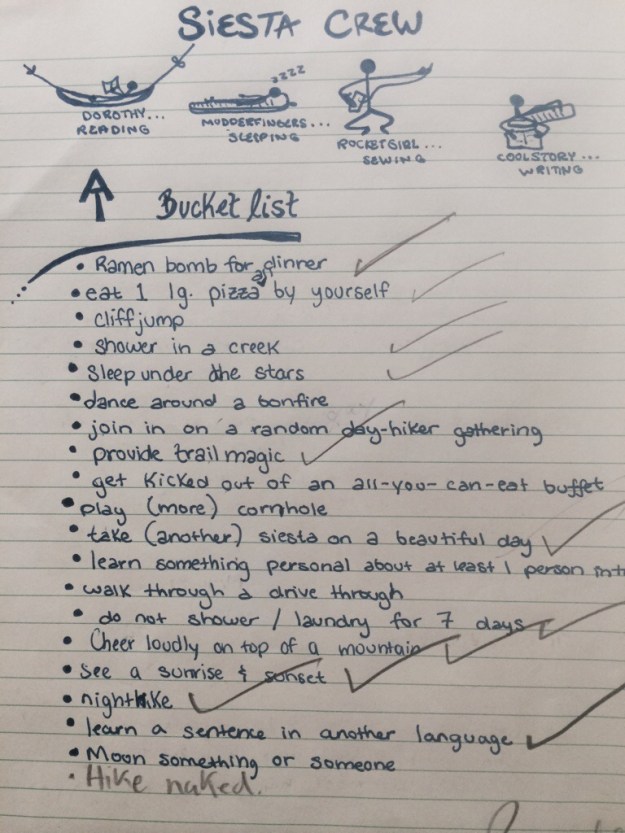 SIESTA CREW
zzzz
DOROTHY...
READING
MODDERFINGERS...
SLEEPING
ROCKETGIRL...
SEWING
COOLSTORY...
WRITING
Bucket list
• Ramen bomb for dinner
• eat 1 lg. pizza by yourself
• cliff jump
• shower in a creek
• sleep under the stars
• dance around a bonfire
• join in on a random day-hiker gathering
• provide trail magic
• get kicked out of an all-you-can-eat buffet
• play (more) cornhole
• take (another) siesta on a beautiful day
• learn something personal about at least 1 person
• walk through a drive through
• do not shower / laundry for 7 days
• Cheer loudly on top of a mountain
• see a sunrise & sunset
• nighthike
• learn a sentence in another language
• Moon something or someone
• Hike naked.